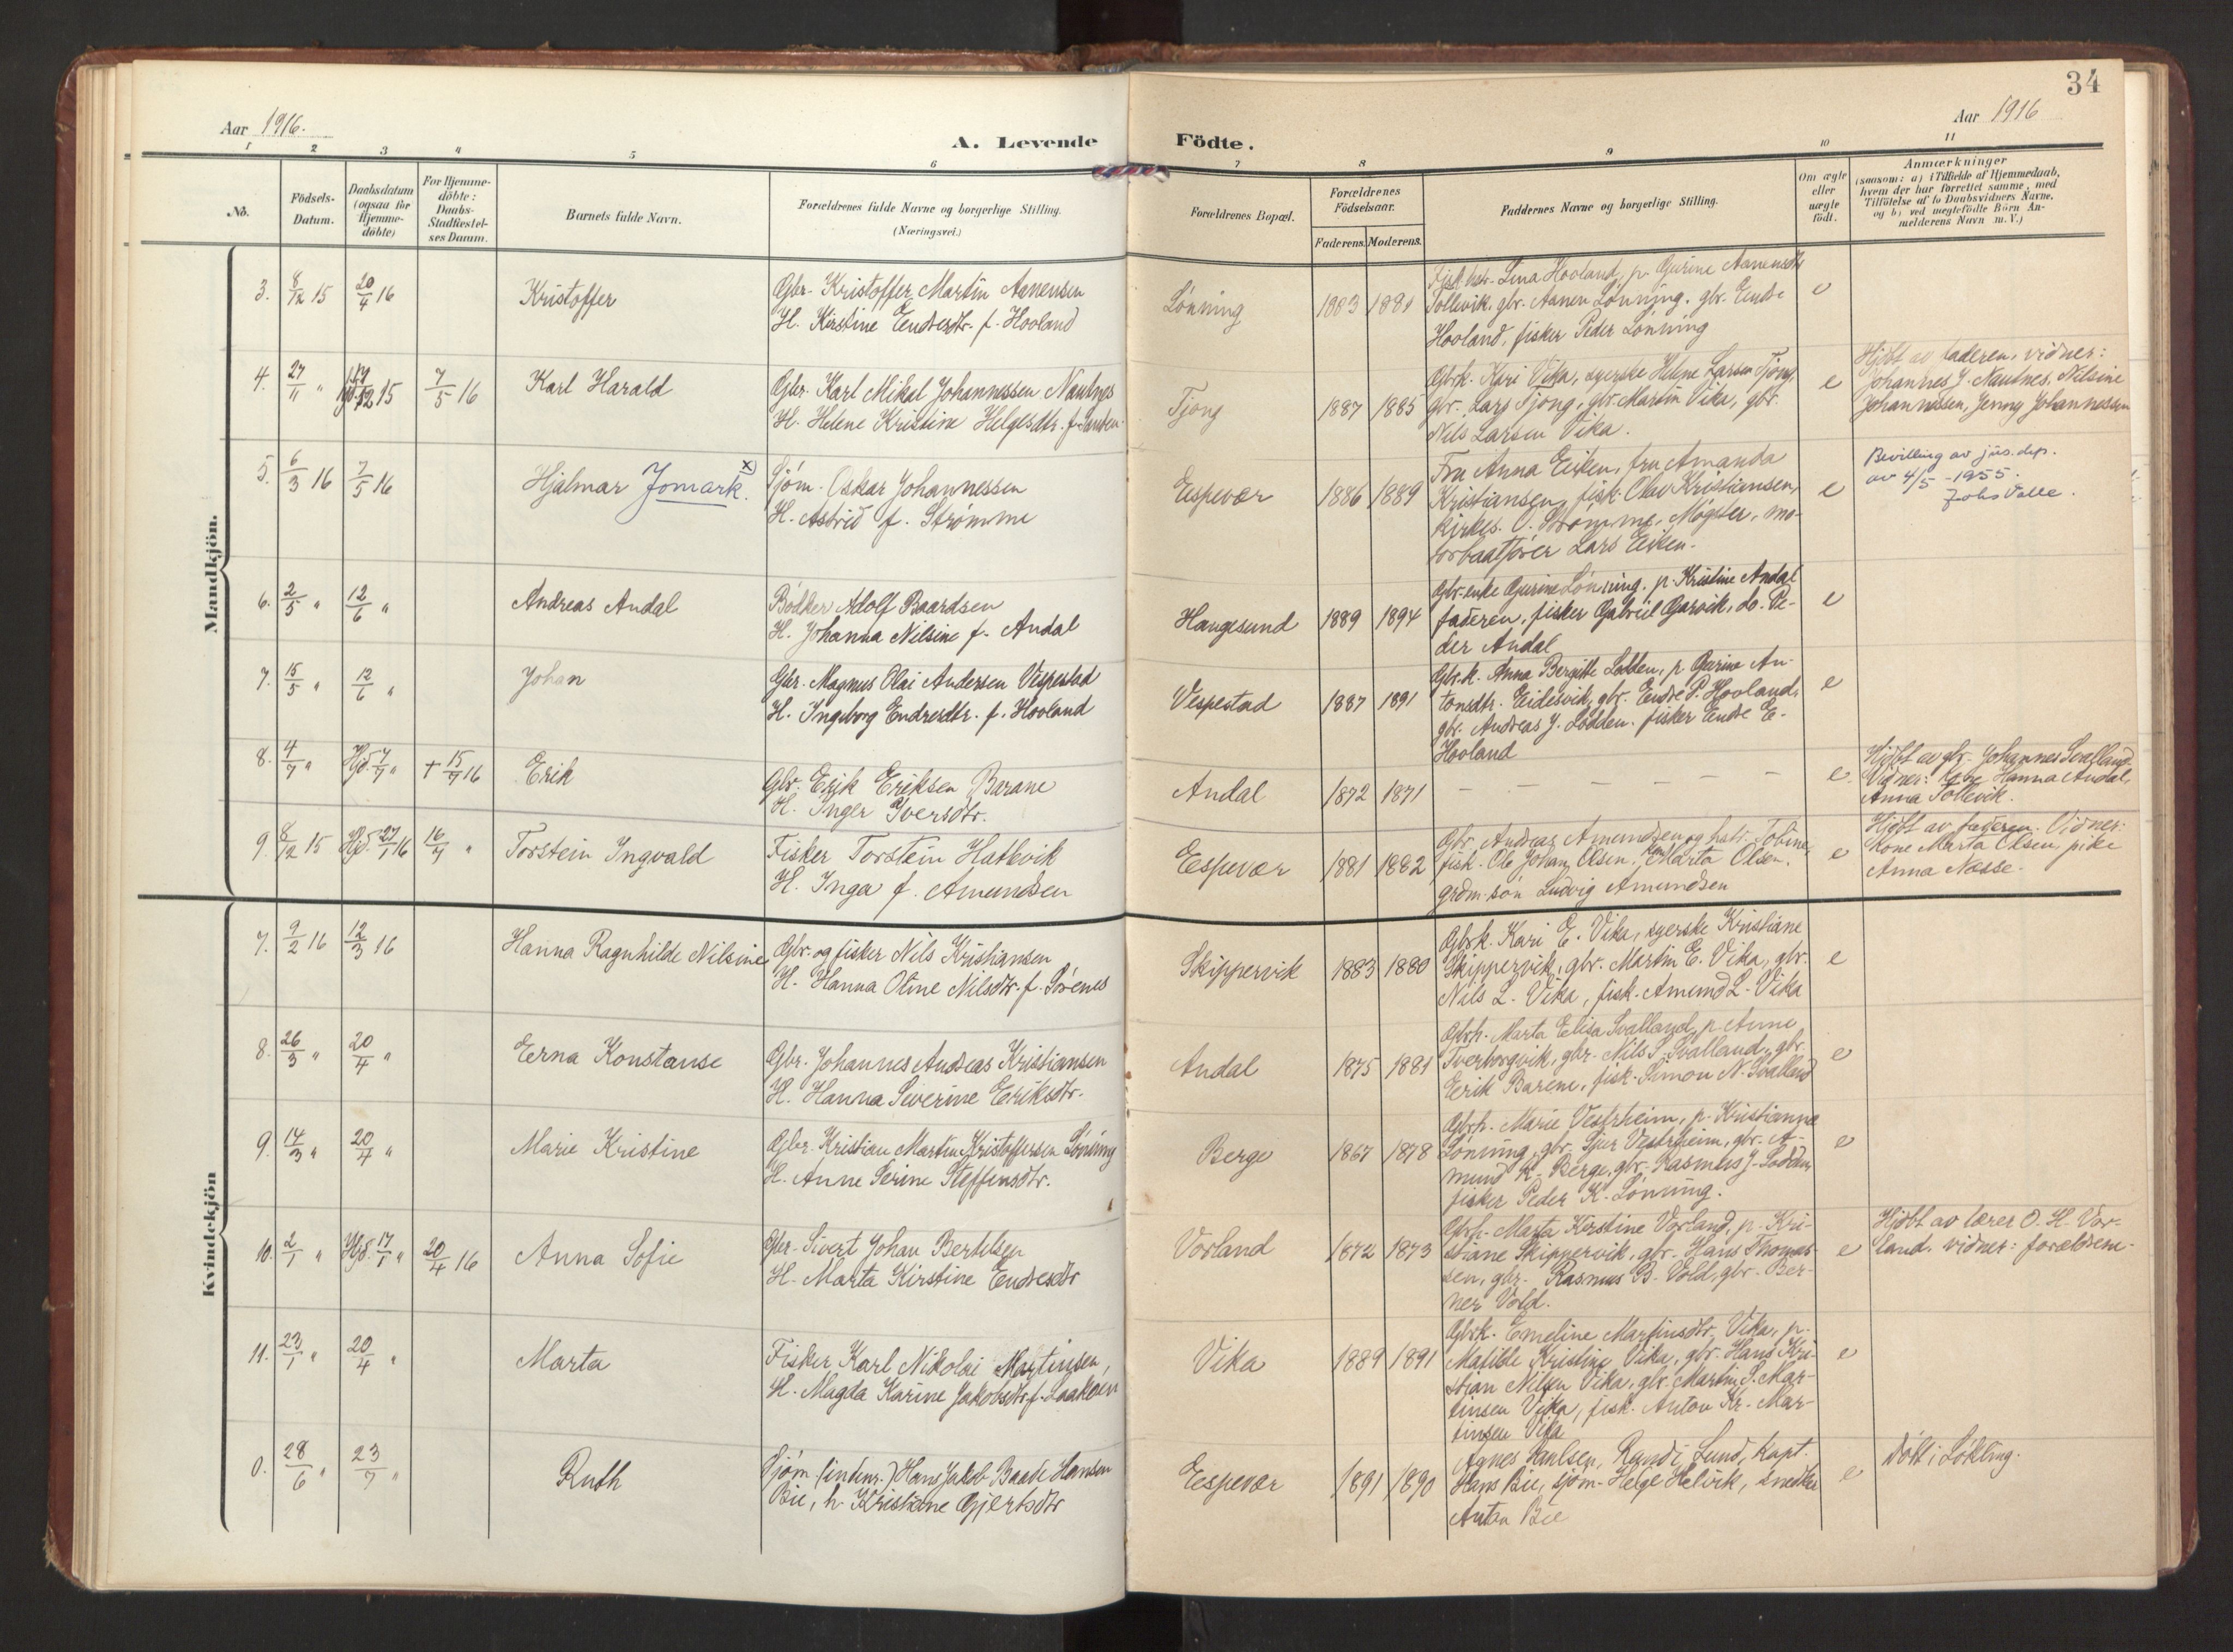 34
Aar 1916.
A. Levende
Födte.
Aar 1916
1 2 3 4 5 6 7 8 9 10 11
No.
Födsels-
Datum.
Daabsdatum
(ogsaa for
Hjemme-
döbte)
For Hjemme-
döbte:
Daabs-
Stadfæstel-
ses Datum.
Barnets fulde Navn.
Forældrenes fulde Navne og borgerlige Stilling.
(Næringsvei.)
Forældrenes Bopæl.
Forældrenes
Födselsaar.
Faderens. Moderens.
Faddernes Navne og borgerlige Stilling.
Om ægte
eller
uægte
födt.
Anmærkninger
(saasom: a) i Tilfælde af Hjemmedaab,
hvem der har forrettet samme, med
Tilföielse af to Daabsvidners Navne,
og b) ved uægtefödte Börn An-
melderens Navn m. V.)
Mandkjön.
3. 8/12 15 20/4 16 Kristoffer
Gbr. Kristoffer Martin Aanensen
H. Kirstine Endresdtr. f. Hovland
Lønning 1883 1881
Lina Hovland, p. Gurine Aanensdtr
Tollevik, gbr. Aanen Lønning, gbr. Endre
Hovland, fisker Peder Lønning
e
4. 27/11 " 15 7/5 16 Karl Harald
Gbr. Karl Mikal Johannessen Nautnes
H. Helene Kristine Helgesdtr.
Tjong 1887 1885
Gbrk. Kari Vika, syerske Helene Larsen Tjong,
gbr. Lars Tjong, gbr. Martin Vika, gbr.
Nils Larsen Vika.
e
Hjdbt av faderen, vidner:
Johannes J. Nautnes, Nilsine
Johannessen, Jenny Johannessen
5. 6/3 16 7/5 16 Hjalmar Jomark. x)
Sjóm. Oskar Johannessen
H. Astrid f. Strømme
Eespevær 1886 1889
Fru Anna Eiken, fru Amanda
Kristiansen, fisk. Olav Kristiansen,
kirkes. O. Strømme, Møgster, mo-
torbaatfører Lars Eiken.
e
Bevilling av jus.dep.
av 4/5 - 1955.
Johs Valle.
6. 2/5 " 12/6 " Andreas Andal
Bødker Adolf Baardsen
H. Johanna Nilsine f. Andal
Haugesund 1889 1894
Gbr.enke Gurine Lønning, p. Kristine Andal
faderen, fisker Gabriel Garvik, do. Pe-
der Andal
e
7. 15/5 " 12/6 " Johan
Gbr. Magnus Olai Andersen Vespestad
H. Ingeborg Endresdtr. f. Hovland
Vespestad 1887 1891
Gbr.k. Anna Bergitte Lodden, p Gurine An-
tonsdtr. Eidesvik, gbr. Endre P. Hovland,
gbr. Andreas J. Lodden, fisker Endre E.
Hovland
e
8. 4/7 " Hjd. 7/7 " + 15/7 16 Erik
Gbr. Erik Eriksen Barane
H. Inger Iversdtr.
Andal 1872 1871
— — — — —
e
Hjdbt av gbr. Johannes Svalland
Vidner: Hanna Andal,
Anna Tollevik.
9. 8/12 15 Hjd. 27/1 16 16/7 " Torstein Ingvald
Fisker Torstein Hatlevik
H. Inga f. Amundsen
Eespevær 1881 1882
Gbr. Andreas Amundsen og hstr. Tobine,
fisk. Ole Johan Olsen, Marta Olsen,
grdm.søn Ludvig Amundsen
e
Hjdbt av faderen. Vidner:
Kone Marta Olsen, pike
Anna Næsse.
Kvindekjön
7. 9/2 16 12/3 16 Hanna Ragnhilde Nilsine
Gbr. og fisker Nils Kristiansen
H. Hanna Oline Nilsdtr. f. Sørenes
Skippervik 1883 1880
Gbrk. Kari E. Vika, syerske Kristiane
Skippervik, gbr. Martin E. Vika, gbr.
Nils L. Vika, fisk. Amund L. Vika
e
8. 26/3 " 20/4 " Eerna Konstanse
Gbr. Johannes Andreas Kristiansen
H. Hanna Severine Eriksdtr.
Andal 1875 1881
Gbrk. Marta Elisa Svalland, p Anne
Tverborgvik, gbr. Nils S. Svalland, gbr.
Eerik Barene, fisk. Simon N. Svalland
e
9. 14/3 " 20/4 " Marie Kristine
Gbr. Kristian Martin Kristoffersen Lønning
H. Anne Serine Steffensdtr.
Berge 1867 1878
Gbrk. Marie Vestrheim, p. Kristianna
Lønning, gbr. Sjur Vestrheim, gbr. A-
mund K. Berge, gbr. Rasmus J. Lodden,
fisker Peder K. Lønning.
e
10. 2/1 " Hjd. 17/1 " 20/4 16 Anna Sofie
Gbr. Sivert Johan Bertelsen
H. Marta Kirstine Endresdtr
Vorland 1872 1873
Gbrk. Marta Kirstine Vorland, p. Kri-
stiane Skippervik, gbr. Hans Thomas-
sen, gbr. Rasmus B. Vold, gbr. Ber-
ner Vold.
e
Hjdbt av lærer O. H. Vor-
land. vidner: forældrene.
11. 23/1 " 20/4 " Marta
Fisker Karl Nikolai Martinsen,
H. Magda Karine Jakobsdtr f.
Vika 1889 1891
Gbrk. Emeline Martinsdtr. Vika, p.
Matilde Kristine Vika, gbr. Hans Kri-
stian Nilsen Vika, gbr. Martin S. Mar-
tinsen Vika, fisk. Anton Kr. Mar-
tinsen Vika
e
0. 28/6 " 23/7 " Ruth
Sjóm. (indenr.) Hans Jakob Baade Hansen
Bie, h. Kristiane Gjertsdtr
Eespevær 1891 1890
Agnes Paulsen, Randi Lund, kapt.
Hans Bie, sjóm. Helge Helvik, snedker
Anton Bie
e
Døbt i Løkling.